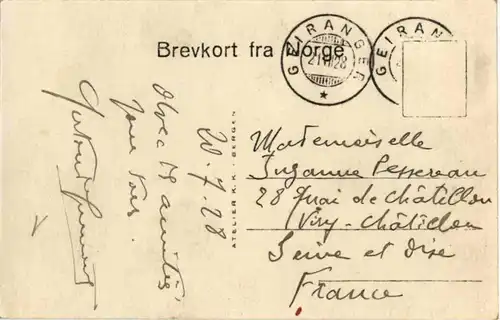 Brevkort fra Norge.
GEIRANGER
21 VII 28
GEIRAN
ATELIER K.K. - BERGEN
20.7.28
amitiés
pour vous.
Mademoiselle
Suzanne Pessereau
28 Quai de Châtillon
Viry-Châtillon
Seine et Oise
France